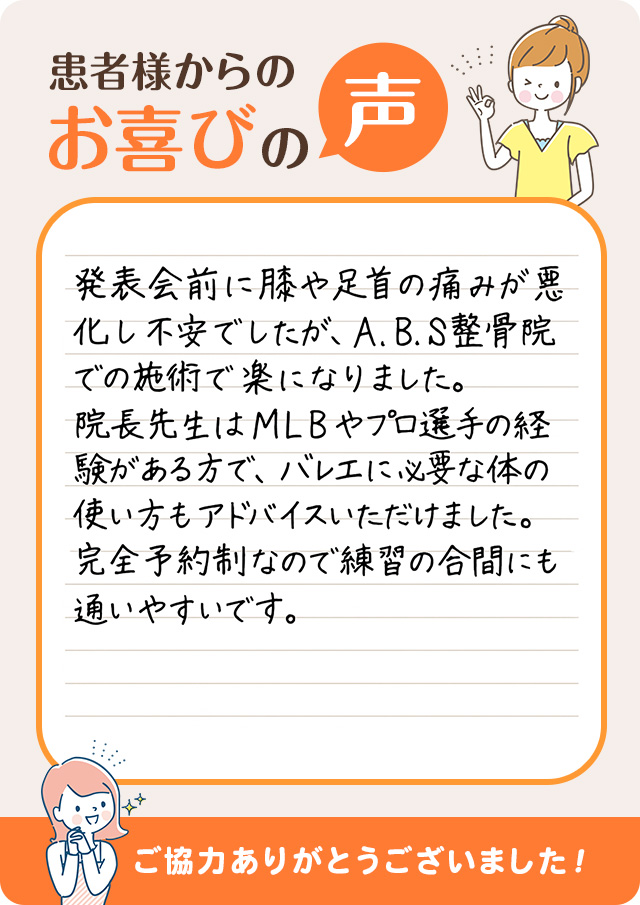 患者様からの
お喜びの声
発表会前に膝や足首の痛みが悪
化し不安でしたが、A.B.S整骨院
での施術で楽になりました。
院長先生はMLBやプロ選手の経
験がある方で、バレエに必要な体の
使い方もアドバイスいただけました。
完全予約制なので練習の合間にも
通いやすいです。
ご協力ありがとうございました!